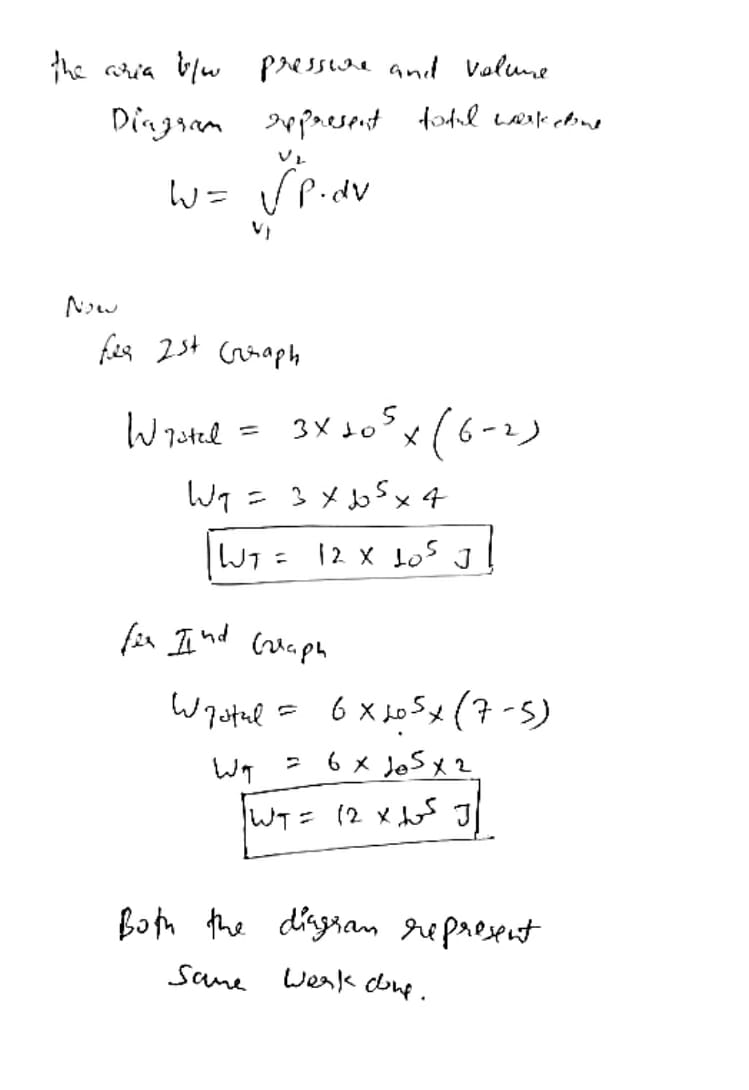 the area b/w pressure and volume
Diagram represent total work done
W = ∫ P.dv
V2
V1
Now
for 1st Graph
W Total = 3 × 10^5 × (6-2)
WT = 3 × 10^5 × 4
WT = 12 × 10^5 J
for IInd Graph
W Total = 6 × 10^5 × (7-5)
WT = 6 × 10^5 × 2
WT = 12 × 10^5 J
Both the diagram represent
same work done.